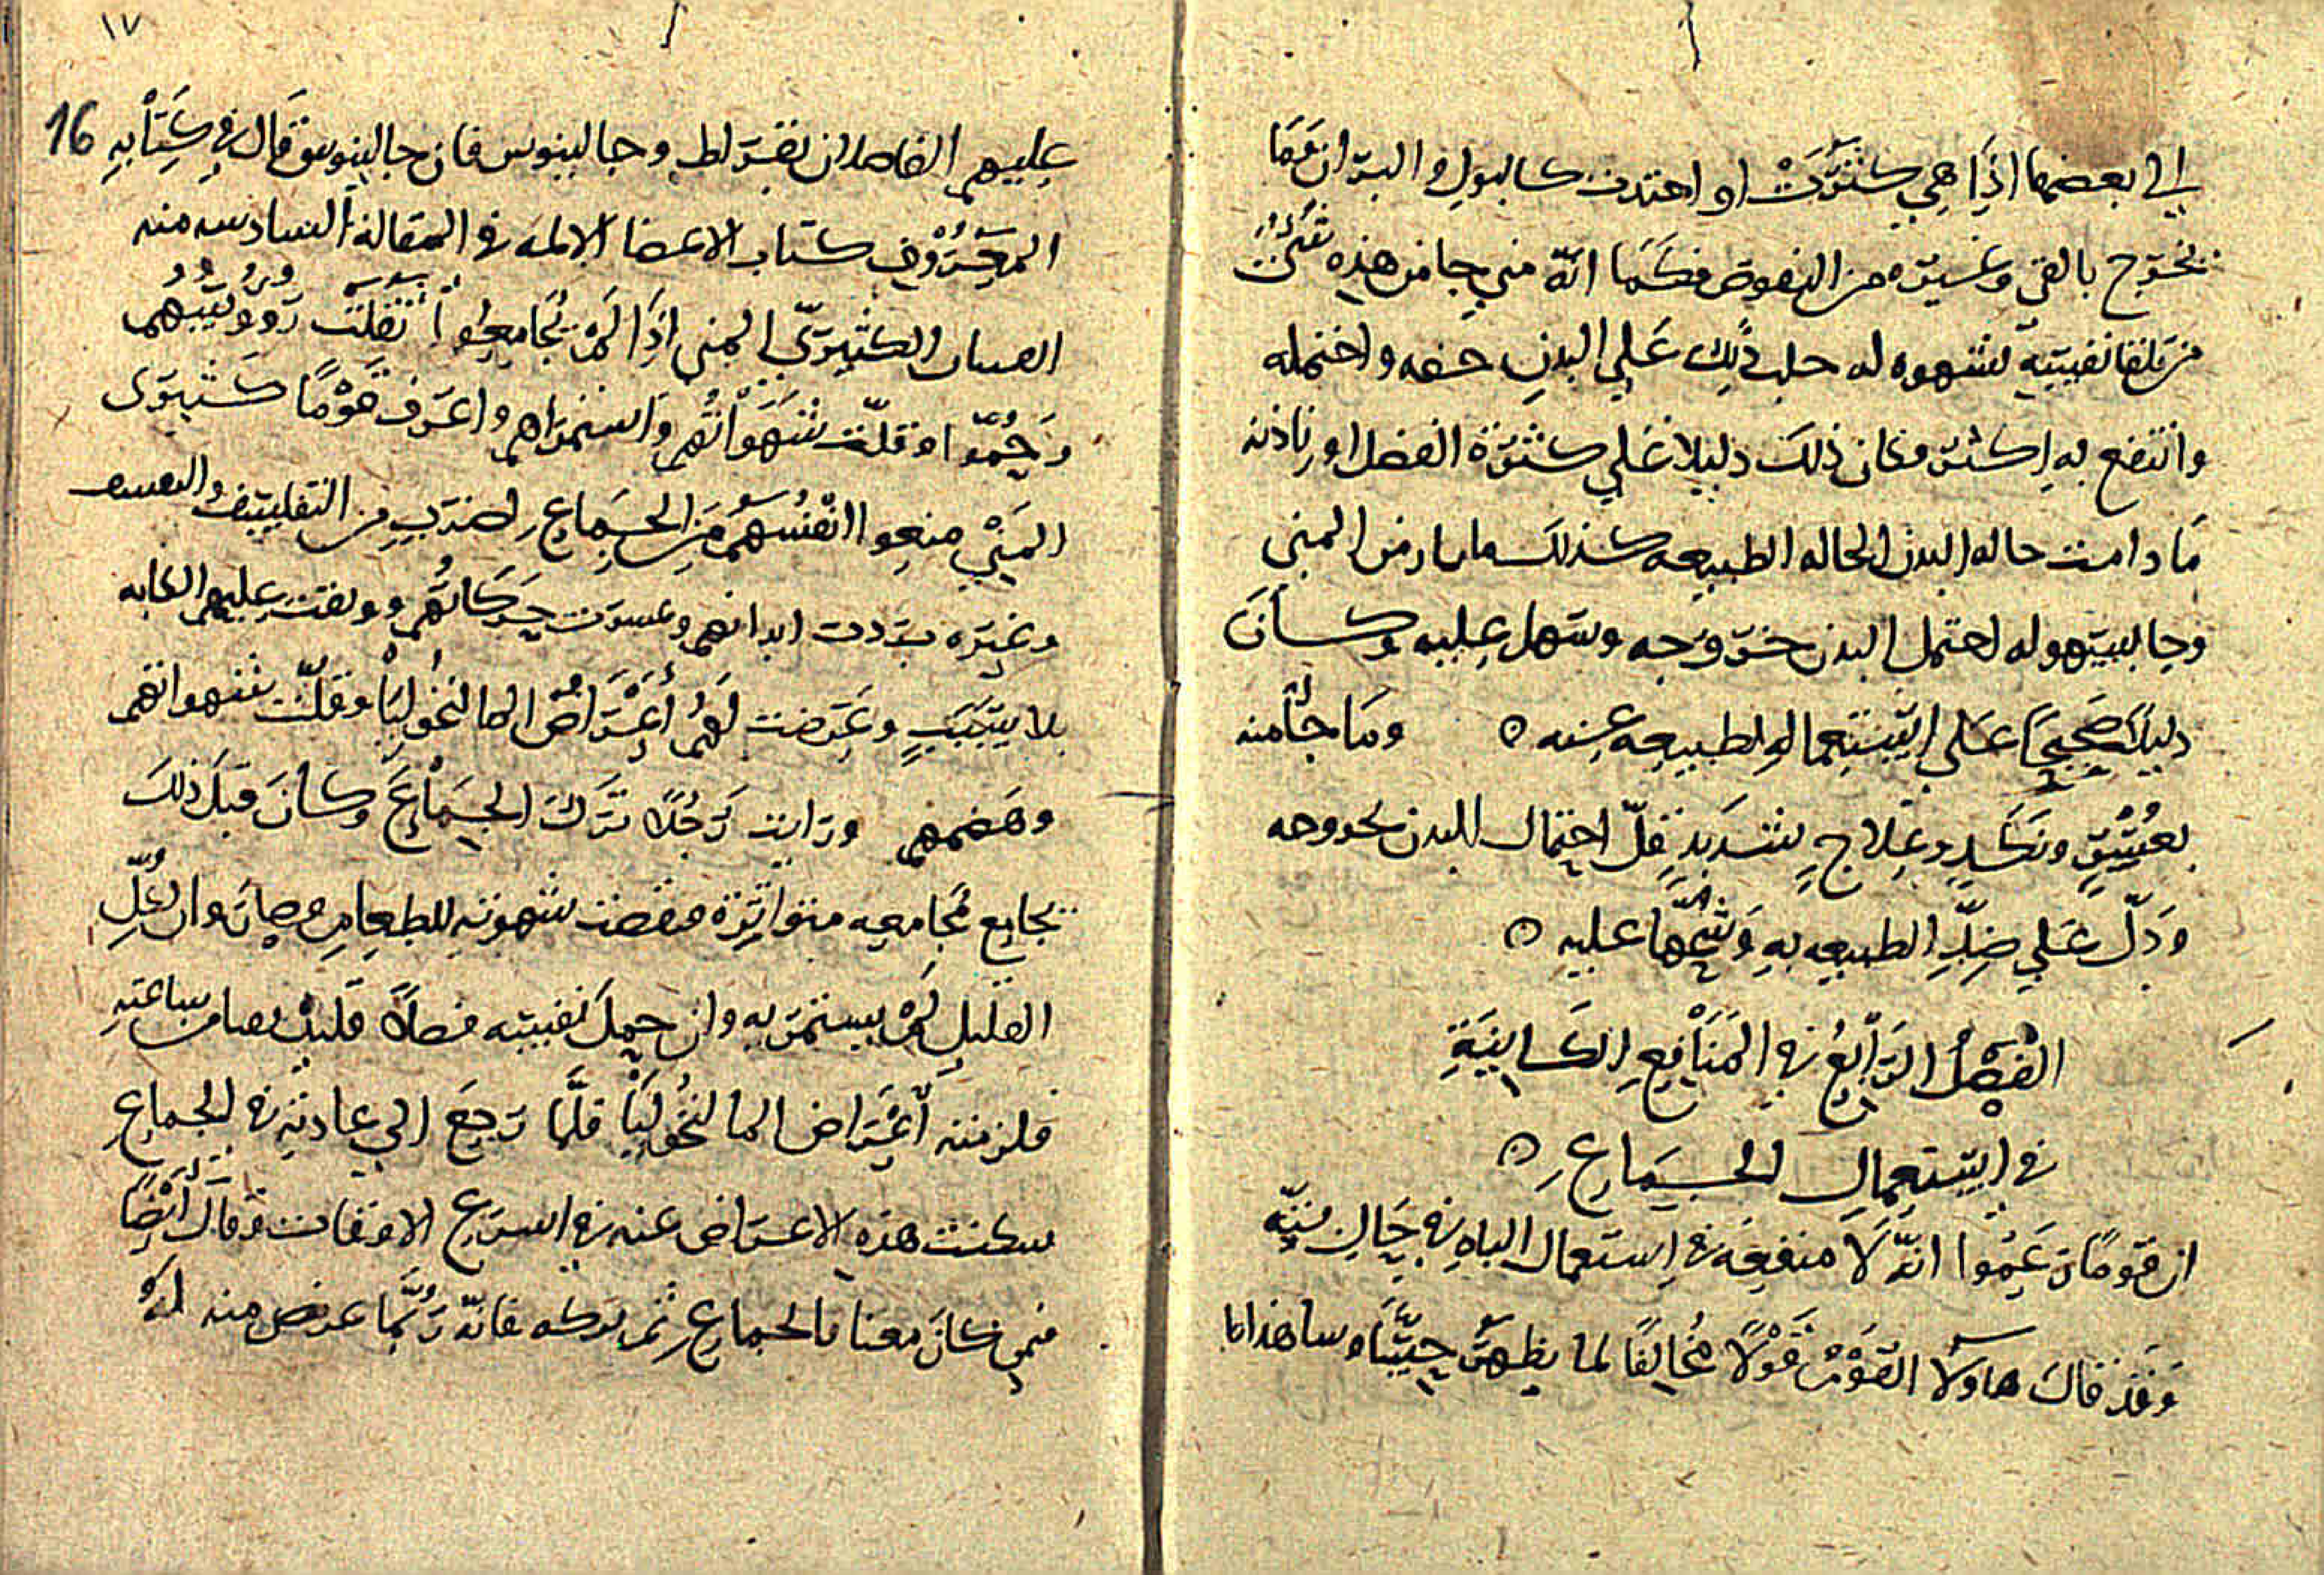 الي بعضها اذا هي كثرت او احتدت كالبول والبراز وما
يخرج بالقي وغيره من النفوض فكما انه متي جا من هذه شي
من تلقا نفسه لشهوه له حل ذلك علي البدن خفه واحتمله
وانتفع به اكثر فكان ذلك دليلا علي كثرة الفضل او
ما دامت حاله البدن الحاله الطبيعه كذلك ما بار من المني
وجا بشهوه له احتمل البدن خروجه وسهل عليه وكان
دليلا صحيحا علي استعمال الطبيعه عنه ٥ وما جا منه
بعشق ونكد وعلاج شديد قل احتمال البدن لخروجه
ودل علي ضد الطبيعه به وشحها عليه ٥
الفصل الرابع في المنافع الكاينة
في استعمال الجماع ٥
ان قوما زعموا انه لا منفعة في استعمال الباه في حال بته
وقد قال هاولا القوم قولا مخالفا لما يظهر حسا وساهدانا
١٧
16
عليهم الفاضلان بقراط وجالينوس فان جالينوس قال في كتابه
المعروف كتاب الاعضا الالمه في المقالة السادسه منه
الفتيان الكثيري المني اذا لم يجامعوا ثقلت رووسهم
وحموا وقلت شهواتهم واستمراهم واعرف قوما كثيري
المني منعوا انفسهم من الجماع لضرب من التفلسف والتقشف
وغيره بردت ابدانهم وعسرت حركاتهم ووقعت عليهم الكابه
بلا سبب وعرضت لهم اعراض المالنخوليا وقلت شهواتهم
وهضمهم ورايت رجلا ترك الجماع وكان قبل ذلك
يجامع مجامعه متواترة فنقصت شهوته للطعام وصار وان اكل
القليل لم يستمر به وان حمل نفسه فضلا قليلا قيا من ساعته
فلزمته اعراض المالنخوليا فلما رجع الي عادته في الجماع
سكنت هذه الاعراض عنه في اسرع الاوقات وقال ايضا
فيمن كان معتاد الجماع ثم تركه فانه ربما عرض منه له